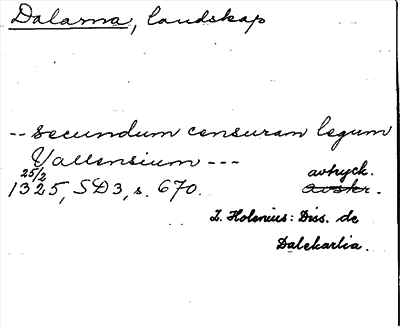 Dalarna, landskap
-- secundum censuram legum
Vallensium ---
25/2
1325, SD3, s. 670. avtryck.
avskr.
L. Holenius: Diss. de
Dalekarlia.